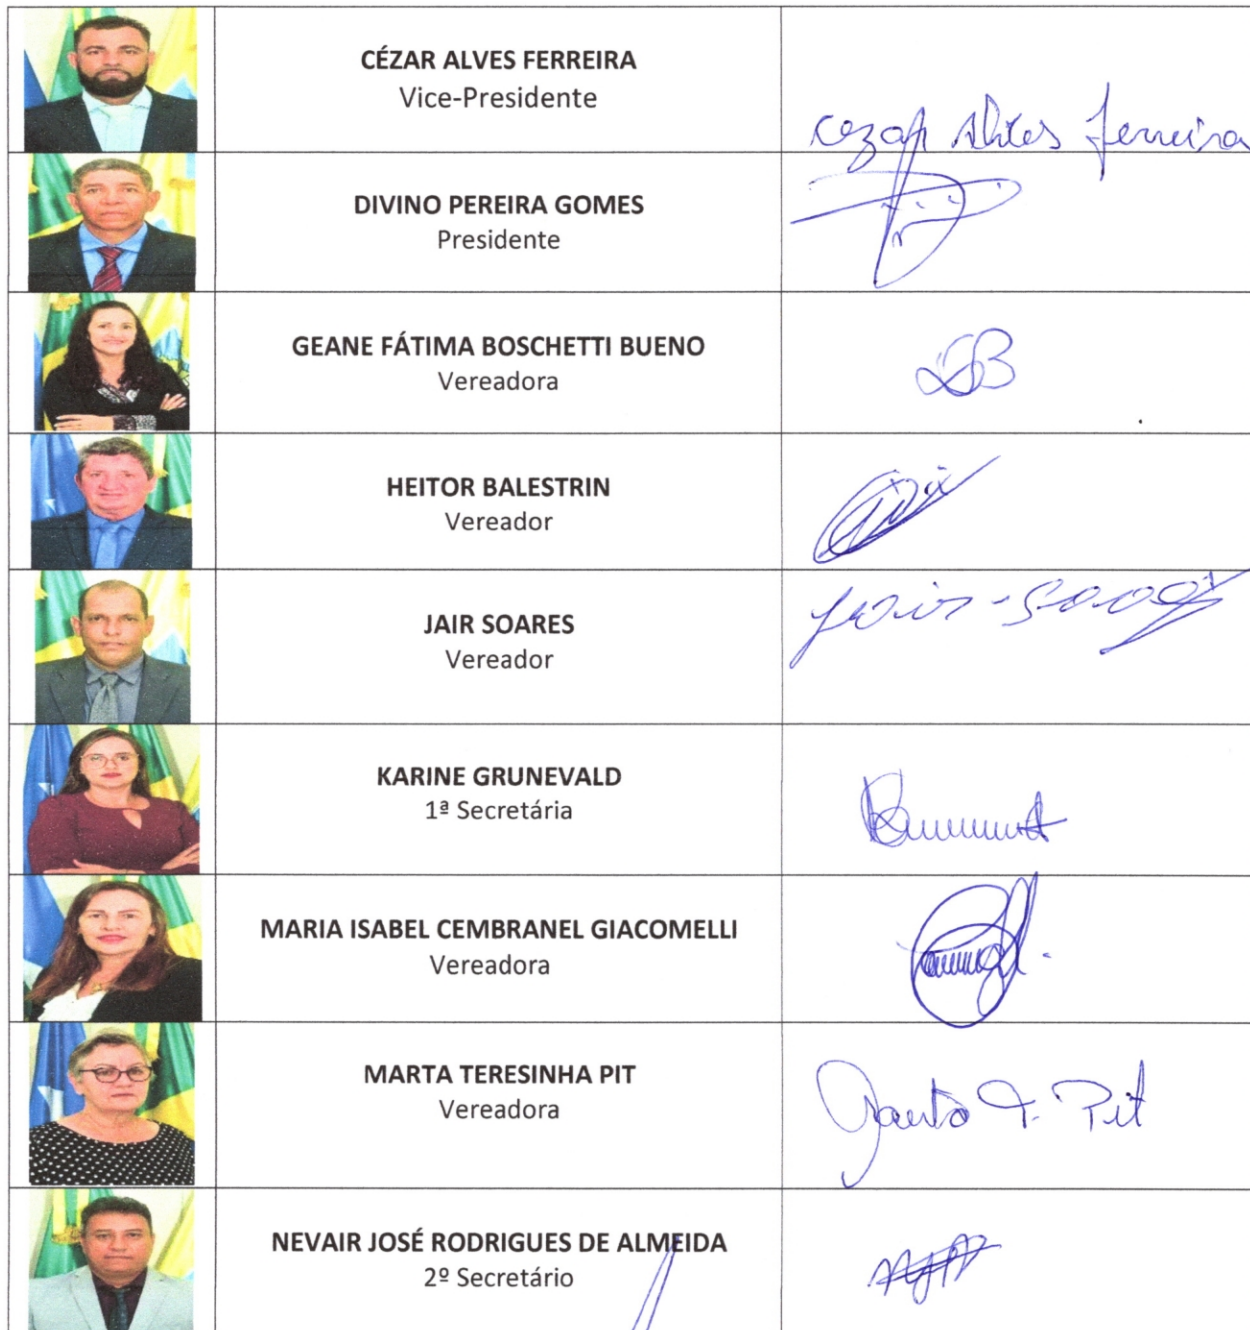 CÉZAR ALVES FERREIRA
Vice-Presidente
Cezar Alves Ferreira
DIVINO PEREIRA GOMES
Presidente
GEANE FÁTIMA BOSCHETTI BUENO
Vereadora
HEITOR BALESTRIN
Vereador
JAIR SOARES
Vereador
Jair - Soares
KARINE GRUNEVALD
1ª Secretária
MARIA ISABEL CEMBRANEL GIACOMELLI
Vereadora
MARTA TERESINHA PIT
Vereadora
Marta T. Pit
NEVAIR JOSÉ RODRIGUES DE ALMEIDA
2º Secretário